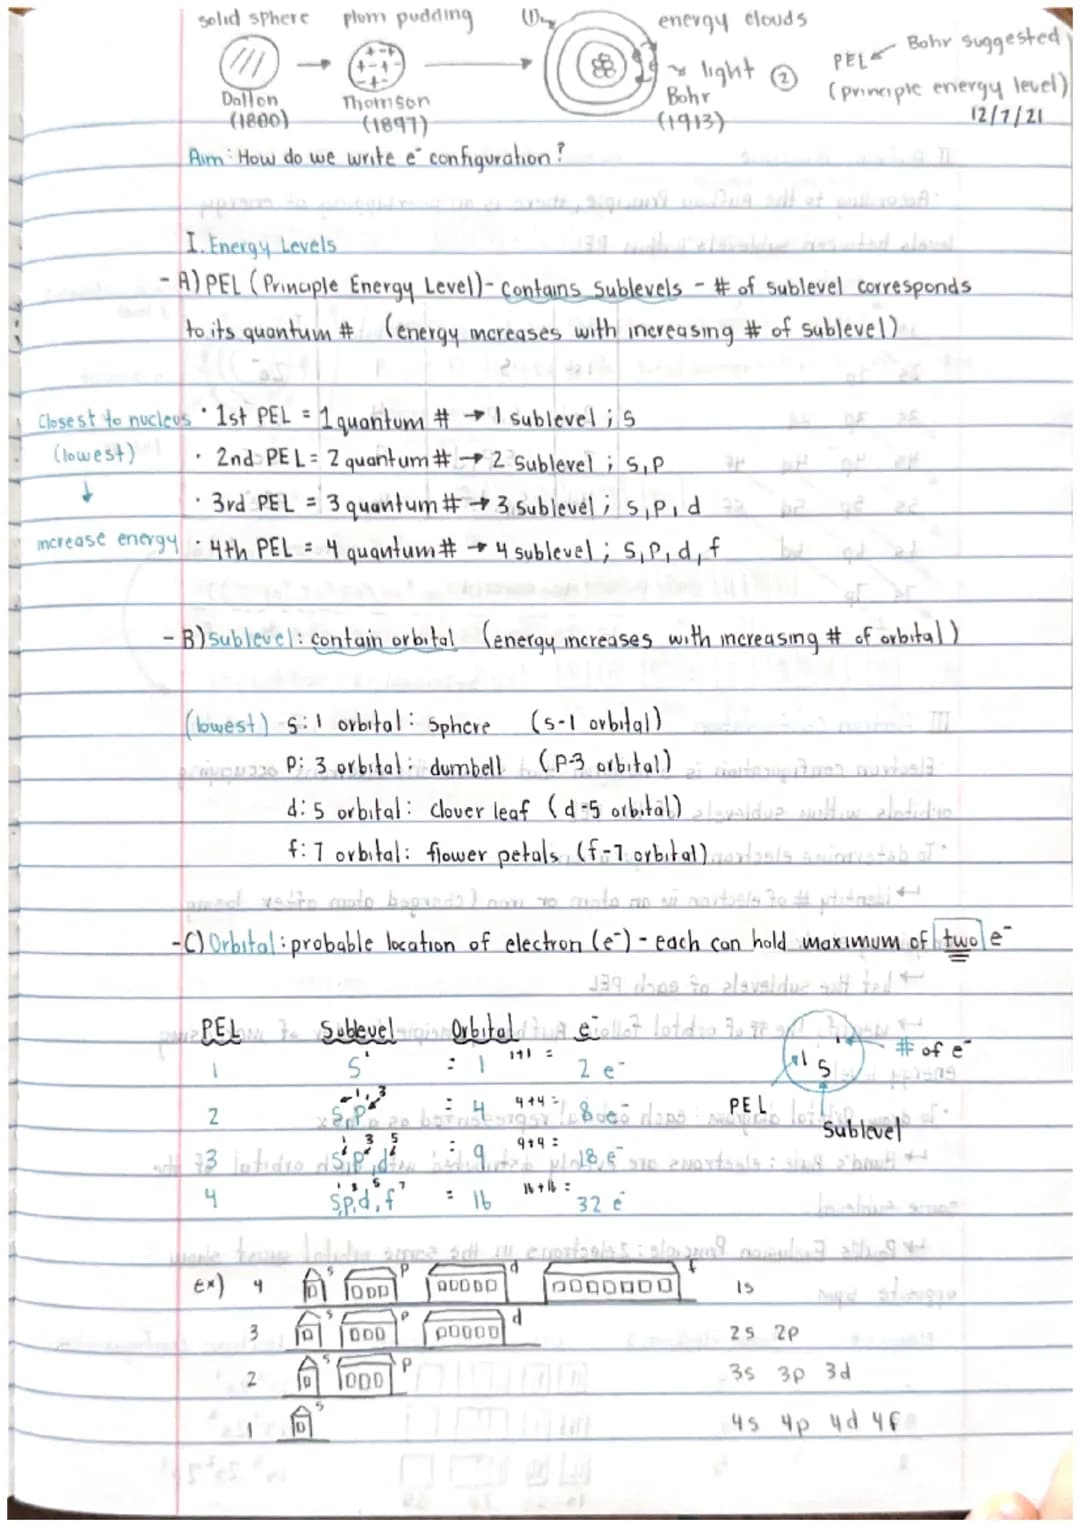 solid sphere plum pudding (1) energy clouds
PEL Bohr suggested
light ②
(principle energy level)
Dalton Thomson Bohr
(1800) (1897) (1913)
12/7/21
Aim: How do we write e⁻ configuration?
I. Energy Levels
- A) PEL (Principle Energy Level) - contains sublevels - # of sublevel corresponds
to its quantum # (energy increases with increasing # of sublevel)
Closest to nucleus • 1st PEL = 1 quantum # → 1 sublevel; s
(lowest) • 2nd PEL = 2 quantum # → 2 sublevel; s, p
↓ • 3rd PEL = 3 quantum # → 3 sublevel; s, p, d
increase energy • 4th PEL = 4 quantum # → 4 sublevel; s, p, d, f
- B) sublevel: contain orbital (energy increases with increasing # of orbital)
(lowest) s: 1 orbital: sphere (s-1 orbital)
p: 3 orbital: dumbell (p-3 orbital)
d: 5 orbital: clover leaf (d-5 orbital)
f: 7 orbital: flower petals (f-7 orbital)
- C) Orbital: probable location of electron (e⁻) - each can hold maximum of two e⁻
PEL Sublevel Orbital e⁻
1 s¹ = 1 1+1 = 2 e⁻
2 s¹, p³ = 4 4+4 = 8 e⁻
3 s¹, p³, d⁵ = 9 9+9 = 18 e⁻
4 s¹, p³, d⁵, f⁷ = 16 16+16 = 32 e⁻
1 s¹ # of e⁻
PEL
Sublevel
Ex) 4 s p d f 1s
3 s p d 2s 2p
2 s p 3s 3p 3d
1 s 4s 4p 4d 4f